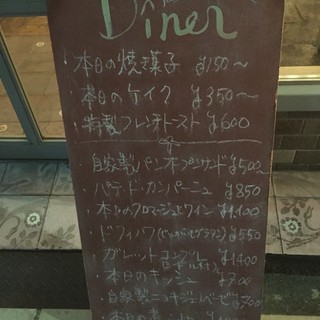 Diner
・本日の焼菓子 ¥150〜
・本日のケイク ¥350〜
・特製フレンチトースト ¥600
・自家製パンオープンサンド ¥500〜
・パテ・ド・カンパーニュ ¥850
・本日のフロマージュとワイン ¥1,100
・ドフィノワ(じゃがいもグラタン) ¥550
・ガレットコンプレ ¥1400
・本日のキッシュ ¥700
・自家製ニョッキジェノベーゼ ¥700
・本日の